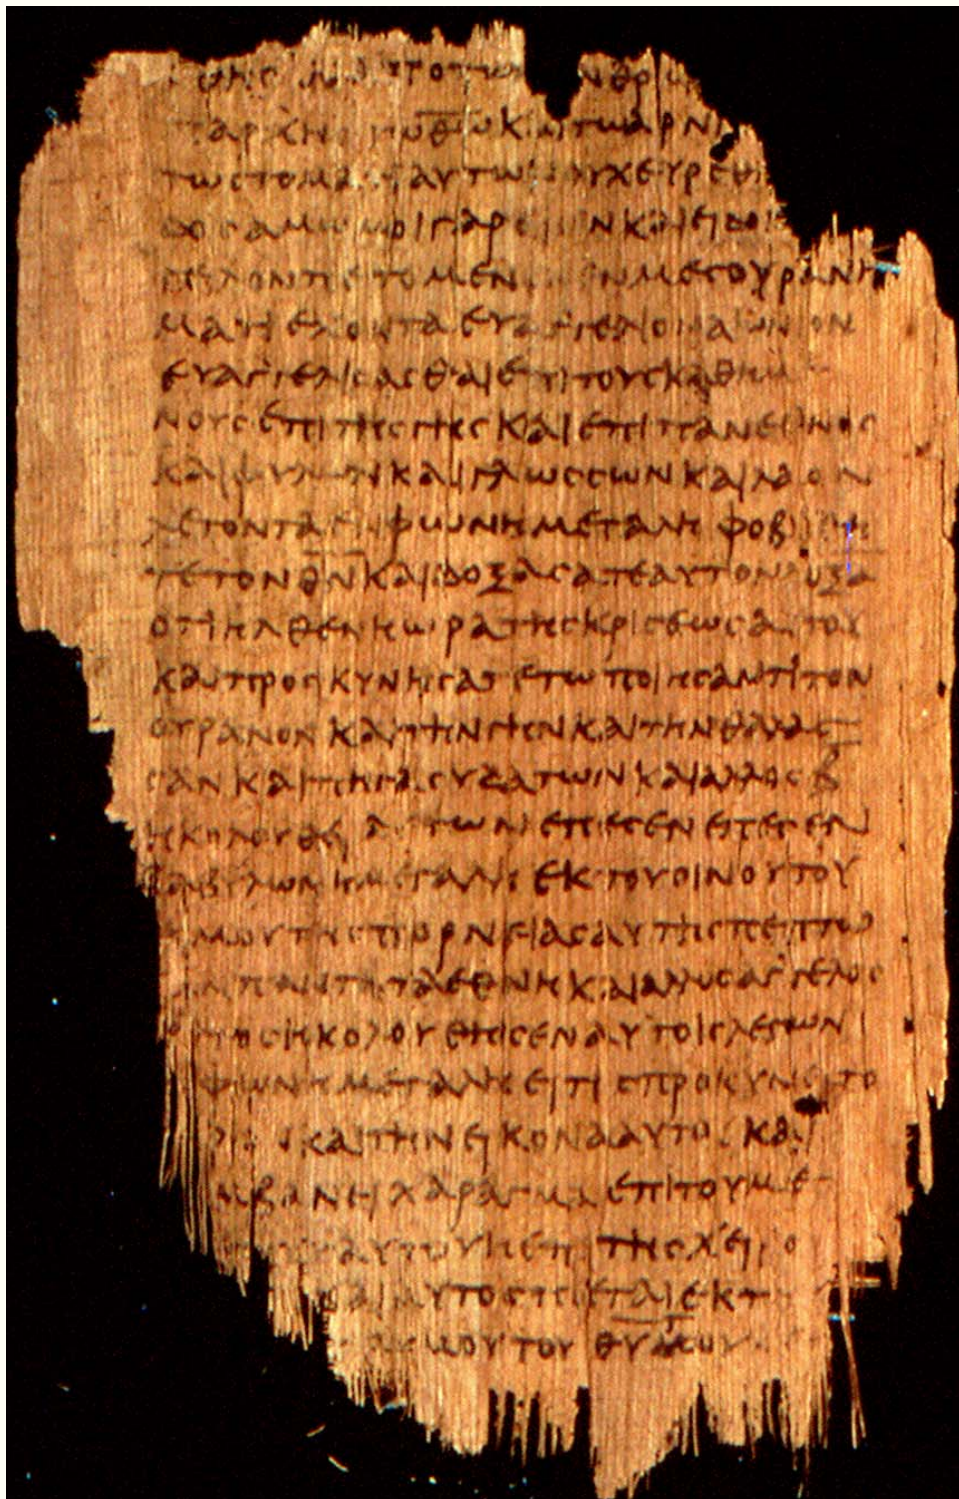 ΘΗϹΑΝΑΠΟΤΩΝΑΝΘΡΩ
ΠΑΡΧΗ ΤΩΘΩΚΑΙΤΩΑΡΝΙ
ΤΩϹΤΟΜΑΤΙΑΥΤΩΝΟΥΧΕΥΡΕΘΗ
ΔΟϹΑΜΩΜΟΙΓΑΡΕΙϹΙΝΚΑΙΕΙΔΟΝ
ΓΕΛΟΝΠΕΤΟΜΕΝΟΝΕΝΜΕϹΟΥΡΑΝΗ
ΜΑΤΙΕΧΟΝΤΑΕΥΑΓΓΕΛΙΟΝΑΙΩΝΙΟΝ
ΕΥΑΓΓΕΛΙϹΑϹΘΑΙΕΠΙΤΟΥϹΚΑΘΗΜΕ
ΝΟΥϹΕΠΙΤΗϹΓΗϹΚΑΙΕΠΙΠΑΝΕΘΝΟϹ
ΚΑΙΦΥΛΗΝΚΑΙΓΛΩϹϹΩΝΚΑΙΛΑΟΝ
ΛΕΓΟΝΤΑΕΝΦΩΝΗΜΕΓΑΛΗΦΟΒΗΘΗ
ΤΕΤΟΝΘΝΚΑΙΔΟΞΑϹΑΤΕΑΥΤΟΝΔΟΞΑ
ΟΤΙΗΛΘΕΝΗΩΡΑΤΗϹΚΡΙϹΕΩϹΑΥΤΟΥ
ΚΑΙΠΡΟϹΚΥΝΗϹΑΤΕΤΩΠΟΙΗϹΑΝΤΙΤΟΝ
ΟΥΡΑΝΟΝΚΑΙΤΗΝΓΗΝΚΑΙΤΗΝΘΑΛΑϹ
ϹΑΝΚΑΙΠΗΓΑϹΥΔΑΤΩΝΚΑΙΑΛΛΟϹΒ
ΗΚΟΛΟΥΘΕΙΑΥΤΩΝΕΠΕϹΕΝΕΠΕϹΕΝ
ΒΑΒΥΛΩΝΗΜΕΓΑΛΗΕΚΤΟΥΟΙΝΟΥΤΟΥ
ΘΥΜΟΥΤΗϹΠΟΡΝΕΙΑϹΑΥΤΗϹΠΕΠΤΩ
ΚΑΝΠΑΝΤΑΤΑΕΘΝΗΚΑΙΑΛΛΟϹΑΓΓΕΛΟϹ
ΤΡΙΤΟϹΗΚΟΛΟΥΘΗϹΕΝΑΥΤΟΙϹΛΕΓΩΝ
ΦΩΝΗΜΕΓΑΛΗΕΙΤΙϹΠΡΟΚΥΝΕΙΤΟ
ΚΑΙΤΗΝΕΙΚΟΝΑΑΥΤΟΥΚΑΙ
ΜΒΑΝΕΙΧΑΡΑΓΜΑΕΠΙΤΟΥΜΕΤ
ΑΥΤΟΥΗΕΠΙΤΗϹΧΕΙΡΟ
ΚΑΙΑΥΤΟϹΠΙΕΤΑΙΕΚΤ
ΟΥΤΟΥΘΥΜΟΥ